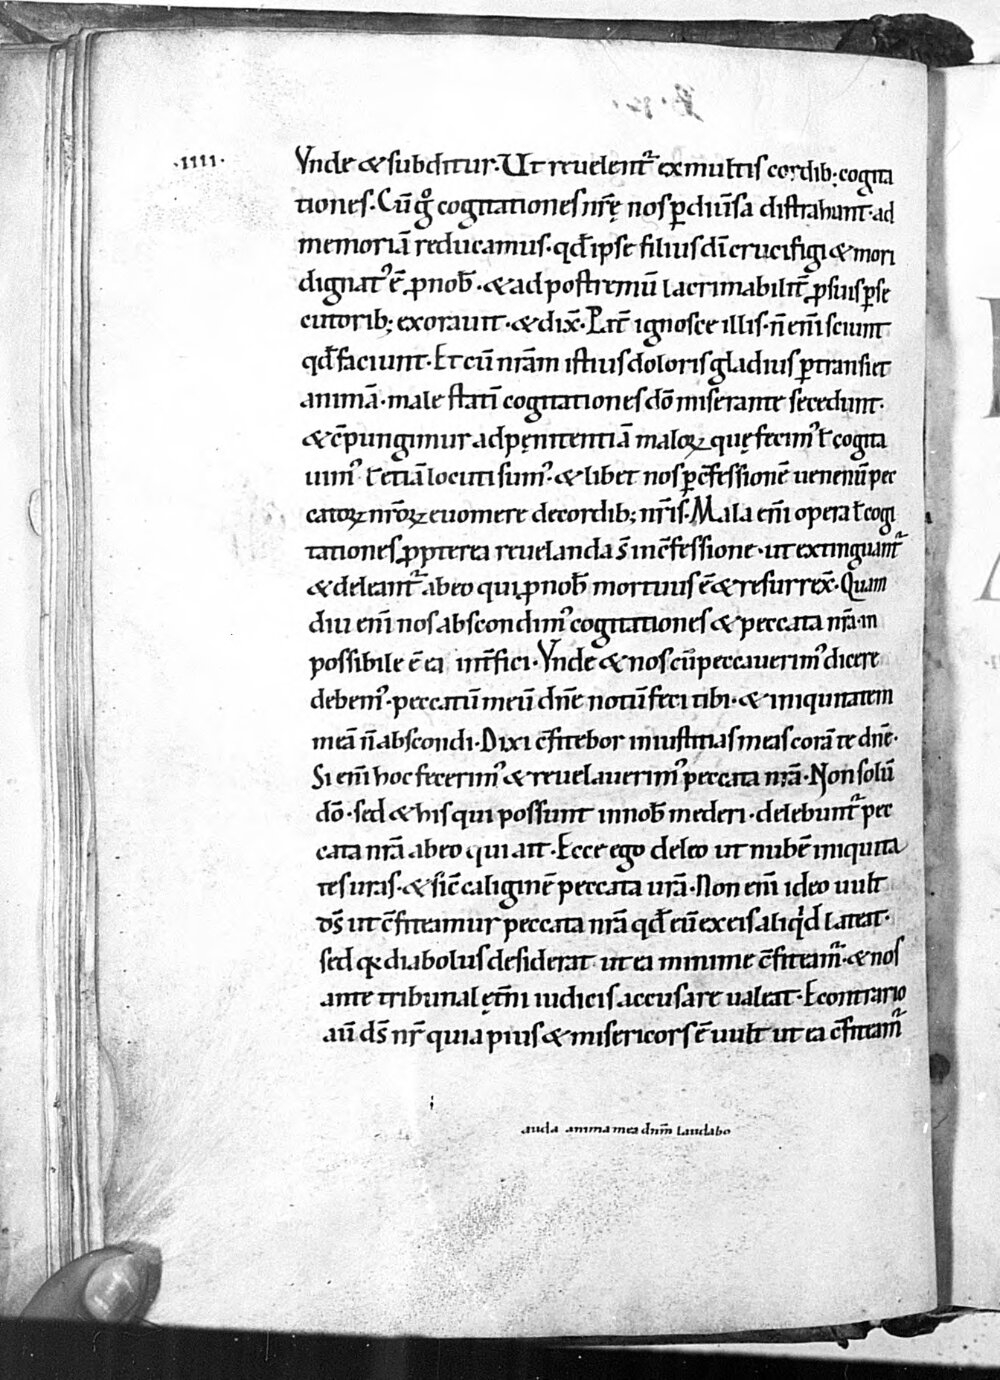 ·IIII·
Vnde & subditur· Ut reuelent᷑ ex multis cordib; cogita
tiones· Cū g̊ cogitationes nr̄ę nos ꝑ diuersa distrahunt· ad
memoriā reducamus· qd̄ ipse filius dī crucifigi & mori
dignat᾽ ē ꝓ nob̄· & ad postremū lacrimabilit̄ ꝓ suis ꝑse
cutorib; exorauit· & dix̄· Pat̄ ignosce illis· n̄ eni̅ sciunt
qd̄ faciunt· Et cū nr̄am istius doloris gladius ꝑtransiet
animā· male statī cogitationes dō miserante secedunt·
& c̄pungimur ad pęnitentiā maloꝝ quę fecim᾽ ł cogita
uim᾽ ł etiā locuti sum᾽· & libet nos ꝑ c̄fessionē uenenū pec
catoꝝ nr̄oꝝ euomere de cordib; nr̄is· Mala eni̅ opera ł cogi
tationes ꝓpterea reuelanda s̄ in c̄fessione· ut extinguant᷑
& deleant᷑ ab eo qui ꝓ nob̄ mortuus ē & resurrex̄· Quam
diu eni̅ nos abscondim᾽ cogitationes & peccata nr̄a· in
possibile ē ea int̄fici· Vnde & nos cū peccauerim᾽ dicere
debem᾽· peccatū meū dn̄e notū feci tibi· & iniquitatem
meā n̄ abscondi· Dixi c̄fitebor iniustitias meas corā te dn̄e·
Si eni̅ hoc fecerim᾽ & reuelauerim᾽ peccata nr̄a· Non solū
dō· sed & his qui possunt in nob̄ mederi· delebunt᷑ pec
cata nr̄a ab eo qui ait· Ecce ego deleo ut nubē iniquita
tes uras· & sic̄ caliginē peccata ur̄a· Non eni̅ ideo uult
ds̄ ut c̄fiteamur peccata nr̄a qd̄ eū ex eis aliqid lateat·
sed q̨ diabolus desiderat ut ea minime c̄fiteam᷑· & nos
ante tribunal ęt̄ni iudicis accusare ualeat· E contrario
aū ds̄ nr̄ quia pius & misericors ē uult ut ea c̄fiteam᷑
auda anima mea dnm̄ laudabo